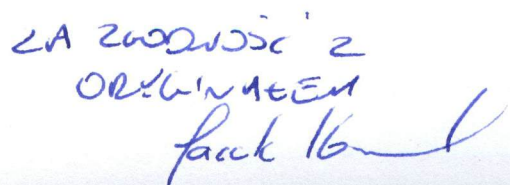 ZA ZGODNOŚĆ Z
ORYGINAŁEM
Jacek